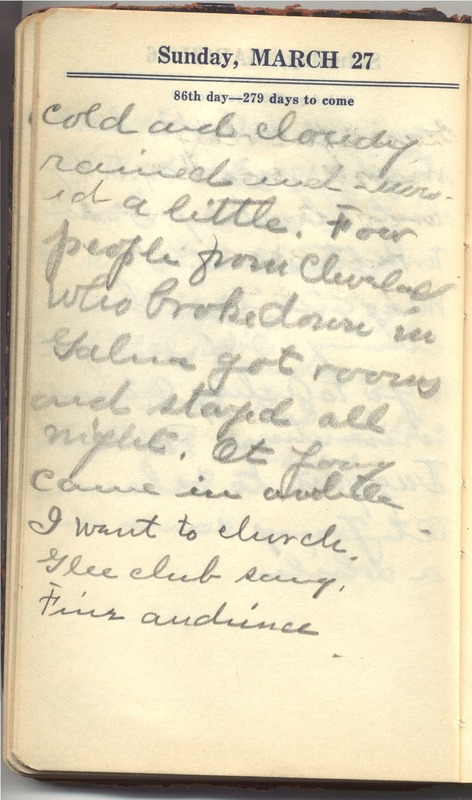 Sunday, MARCH 27
86th day—279 days to come
cold and cloudy
rained and snow-
ed a little. Four
people from Cleveland
who broke down in
Galena got rooms
and stayed all
night. At Gony
came in awhile
I want to church.
Glee club sang.
Fine audience